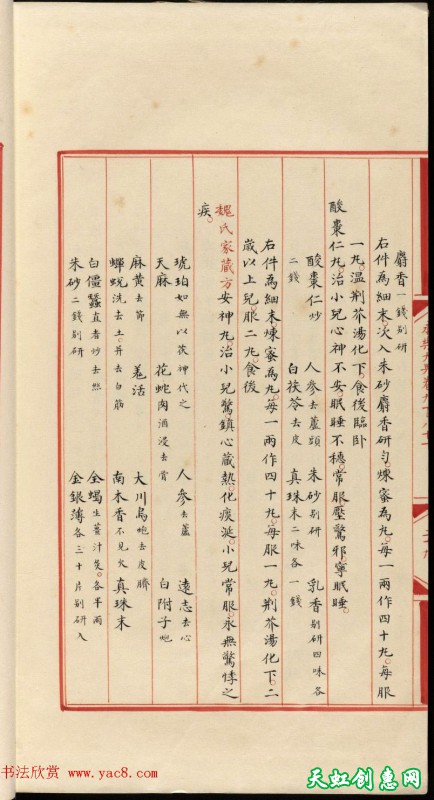 麝香一錢别研
右件爲細末次入朱砂麝香研勻煉蜜爲丸每一兩作四十丸每服
一丸温荆芥湯化下食後臨卧
酸棗仁丸治小兒心神不安眠睡不穩常服壓驚邪寧眠睡
酸棗仁炒 人參去蘆頭 朱砂别研 乳香别研四味各
二錢 白茯苓去皮 真珠末二味各一錢
右件爲細末煉蜜爲丸每一兩作四十丸每服一丸荆芥湯化下二
歲以上兒服二丸食後
魏氏家藏方安神丸治小兒驚鎮心藏熱化痰涎小兒常服永無驚悸之
疾
琥珀如無以茯神代之 人參去蘆 遠志去心
天麻 花蛇肉酒浸去骨 白附子炮
麻黄去節 羌活 大川烏炮去皮臍
蟬蜕洗去土并去白筋 南木香不見火 真珠末
白僵蠶直者炒去絲 全蝎生薑汁炙各半兩
朱砂二錢别研 金銀薄各三十片别研入
永樂大典卷九百八十一
书法欣赏 www.yac8.com
天虹创意网